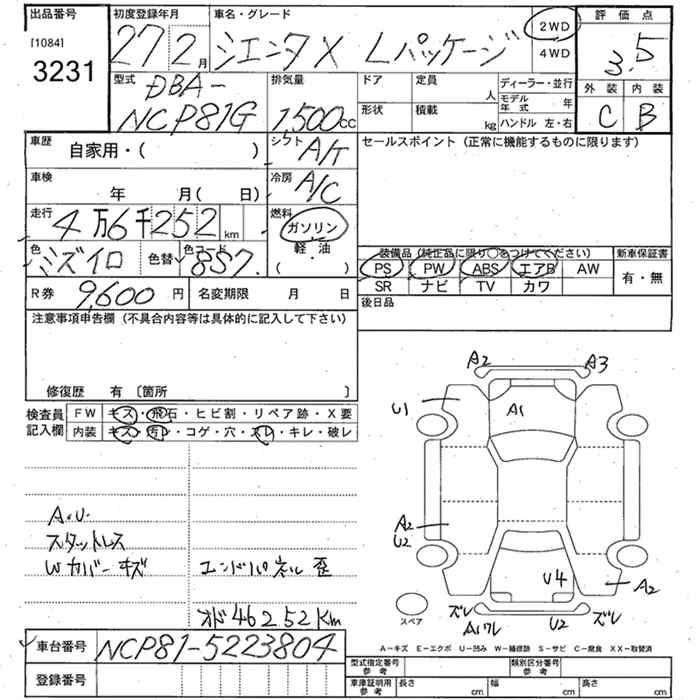 出品番号
[1084]
3231
初度登録年月
27 2月
車名・グレード
シエンタ X Lパッケージ
2WD
4WD
評価点
3.5
外装 内装
C B
型式
DBA-
NCP81G
排気量
1,500cc
ドア 定員 人
形状 積載 kg
ディーラー・並行
モデル年式 年
ハンドル 左・右
車歴
自家用・( )
シフト
A/T
セールスポイント (正常に機能するものに限ります)
車検
年 月(日)
冷房
A/C
走行
4万6千252km
燃料
ガソリン
軽・油
( )
色
ミズイロ
色替
色コード
8S7
装備品 (純正品に限り○をつけてください)
新車保証書
PS PW ABS エアB AW
SR ナビ TV カワ
有・無
R券 9,600円
名変期限 月 日
後日品
注意事項申告欄 (不具合内容等は具体的に記入して下さい)
修復歴 有 〔箇所 〕
検査員
記入欄
FW キズ・飛石・ヒビ割・リペア跡・X要
内装 キズ・汚レ・コゲ・穴・スレ・キレ・破レ
A2 A3
U1
A1
A2
U2
U4
A2
スペア
ズレ
Aワレ
U2
ズレ
A.U.
スタットレス
Wカバーキズ
エンドパネル歪
オド46252Km
車台番号
NCP81-5223804
登録番号
A-キズ E-エクボ U-凹み W-補修跡 S-サビ C-腐食 XX-取替済
型式指定番号
参考
類別区分番号
参考
車庫証明用
参考
長さ cm
幅 cm
高さ cm